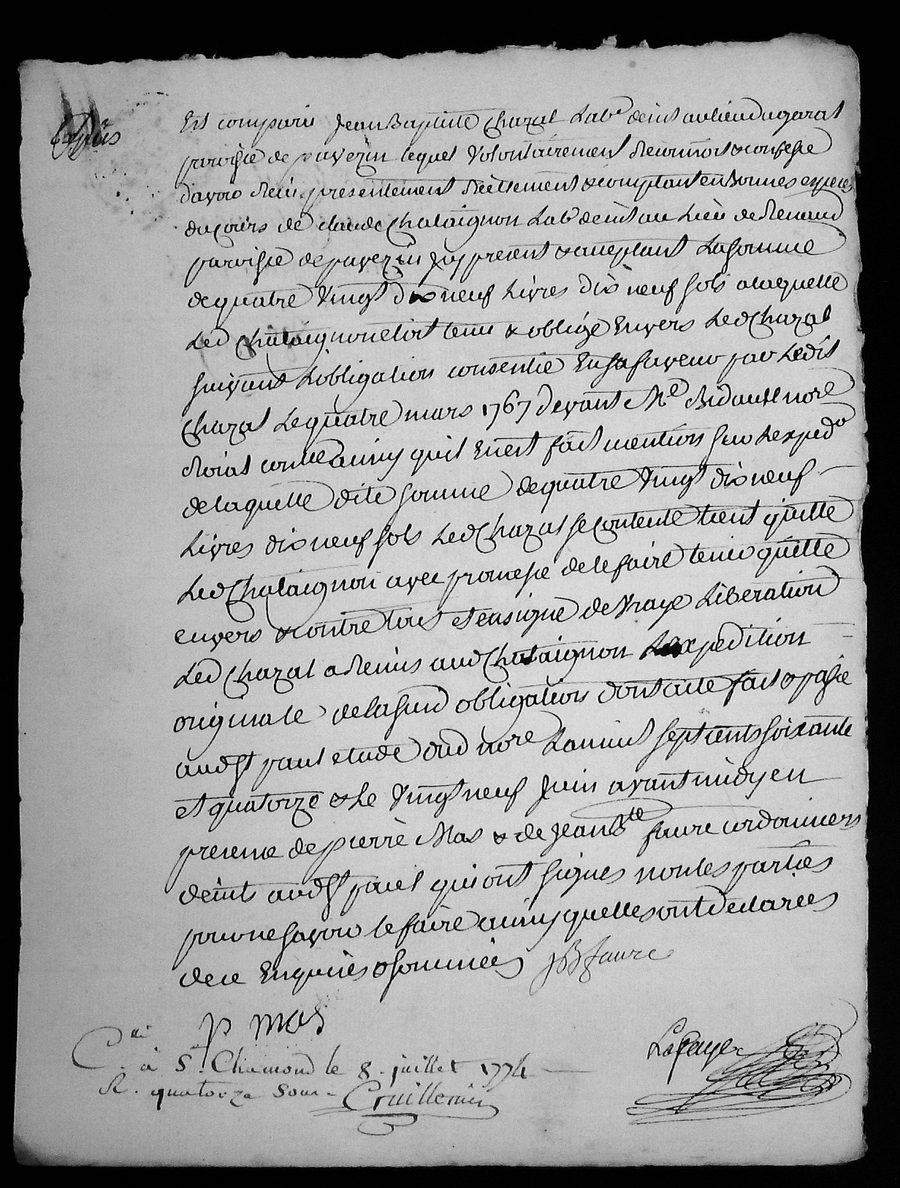 Est comparu Jean Baptiste Chazal Lab.r deint au lieu du gazat
paroisse de paverin lequel volontairement Reconnoit & confesse
d'avoir Reçu presentement Reellement & comptant en Bonnes especes
du cours de Claude Chataignon Lab.r deint au Lieu de Renaud
paroisse de paverin Jcy present & acceptant La somme
de quatre vingt dix neuf Livres dix neuf sols a laquelle
Led Chataignon etoit tenu & obligé Envers Led Chazal
suivant L'obligation consentie En sa faveur par Ledit
Chazal Le quatre mars 1767 devant M.e Ridault nore
Roial con.lle ainsy qu'il En est fait mention sur L'exped.o
de laquelle dite somme de quatre vingt dix neuf
Livres dix neuf sols Led Chazal se contente tient quitte
Led Chataignon avec promesse de le faire tenir quitte
envers & contre tous et en signe de vraye Liberation
Led Chazal a Remis aud Chataignon L'expedition
originale de lasusd obligation dont acte fait & passé
aud St paul etude dud nore L'an mil sept cents soixante
et quatorze & Le vingt neuf Juin avant midy en
presence de pierre Mas & de Jean B.te faure cordonniers
deint aud St paul qui ont signes non les parties
pour ne savoir le faire ainsy quelles ont declarées
de ce Enquises & sommées J B faure
p mas
C.lle à S.t Chamond le 8. juillet 1774
R. quatorze sous Cruillemin
Lafayer